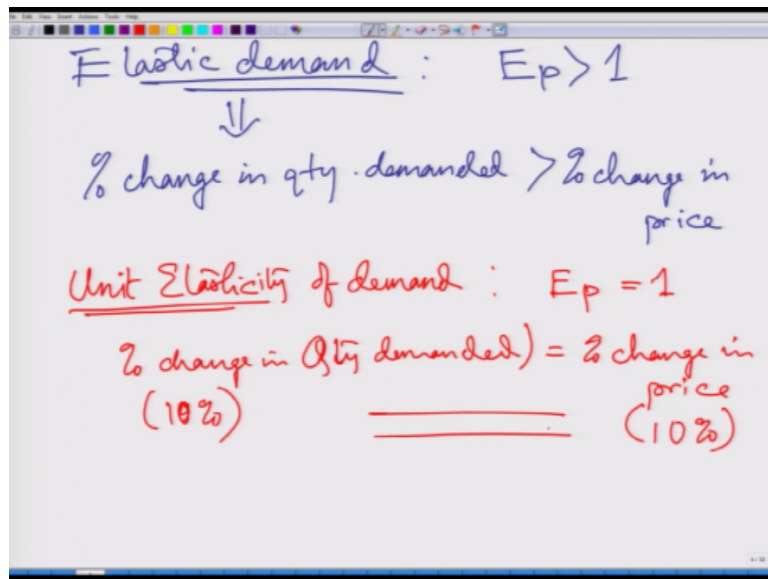 Elastic demand : Ep > 1
⇓
% change in qty. demanded > % change in
price
Unit Elasticity of demand : Ep = 1
% change in Qty demanded) = % change in
price
(10%) (10%)